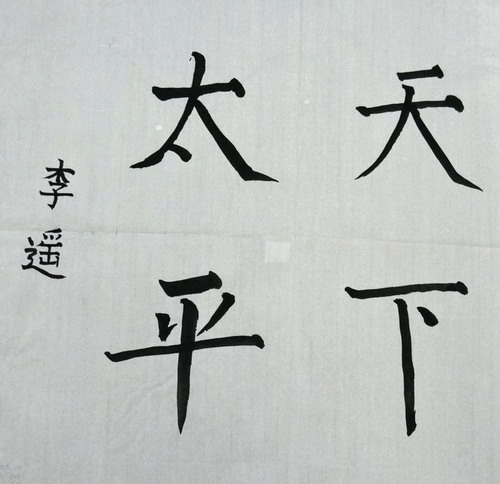 天下
太平
李遥